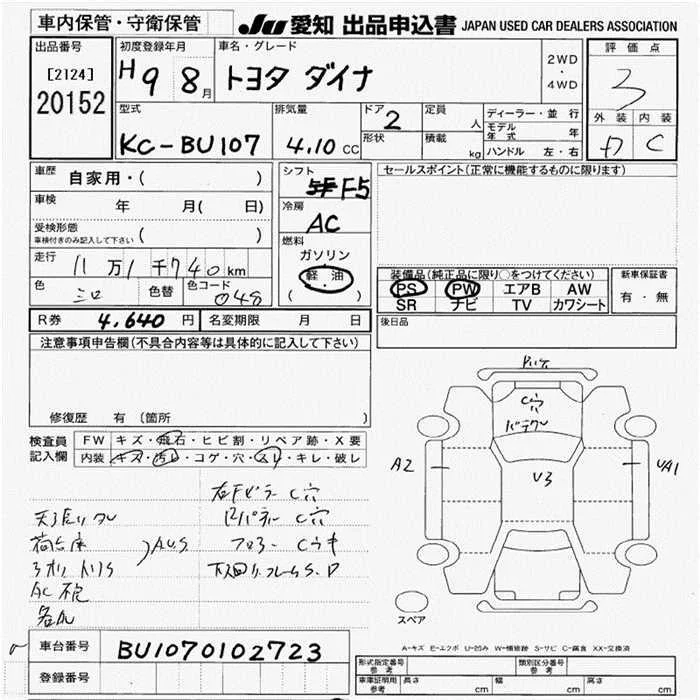 車内保管・守衛保管
JU 愛知 出品申込書 JAPAN USED CAR DEALERS ASSOCIATION
出品番号
[2124]
20152
初度登録年月
H9 8月
車名・グレード
トヨタ ダイナ
2WD
・
4WD
評価点
3
外装 内装
D C
型式
KC-BU107
排気量
4.10 CC
ドア
2
形状
定員
人
積載
kg
ディーラー・並行
モデル年式 年
ハンドル 左・右
車歴
自家用・( )
車検
年 月( 日)
受検形態
車検付きのみ記入して下さい ( )
走行
11万1千740km
色
色替
色コード
048
シフト
F5
冷房
AC
燃料
ガソリン
軽油
( )
セールスポイント(正常に機能するものに限ります)
装備品(純正品に限り○をつけてください)
PS PW エアB AW
SR ナビ TV カワシート
新車保証書
有・無
後日品
R券 4,640 円 名変期限 月 日
注意事項申告欄(不具合内容等は具体的に記入して下さい)
修復歴 有 (箇所 )
検査員
記入欄
FW キズ・飛石・ヒビ割・リペア跡・X要
内装 キズ・汚レ・コゲ・穴・スレ・キレ・破レ
C穴
C穴
フロアー Cウキ
AC
A2
V3
UA1
C穴
スペア
A-キズ E-エクボ U-凹み W-補修跡 S-サビ C-腐食 XX-交換済
車台番号 BU1070102723
登録番号
形式指定番号
参考
類別区分番号
参考
車庫証明用
参考
長さ cm 幅 cm 高さ cm